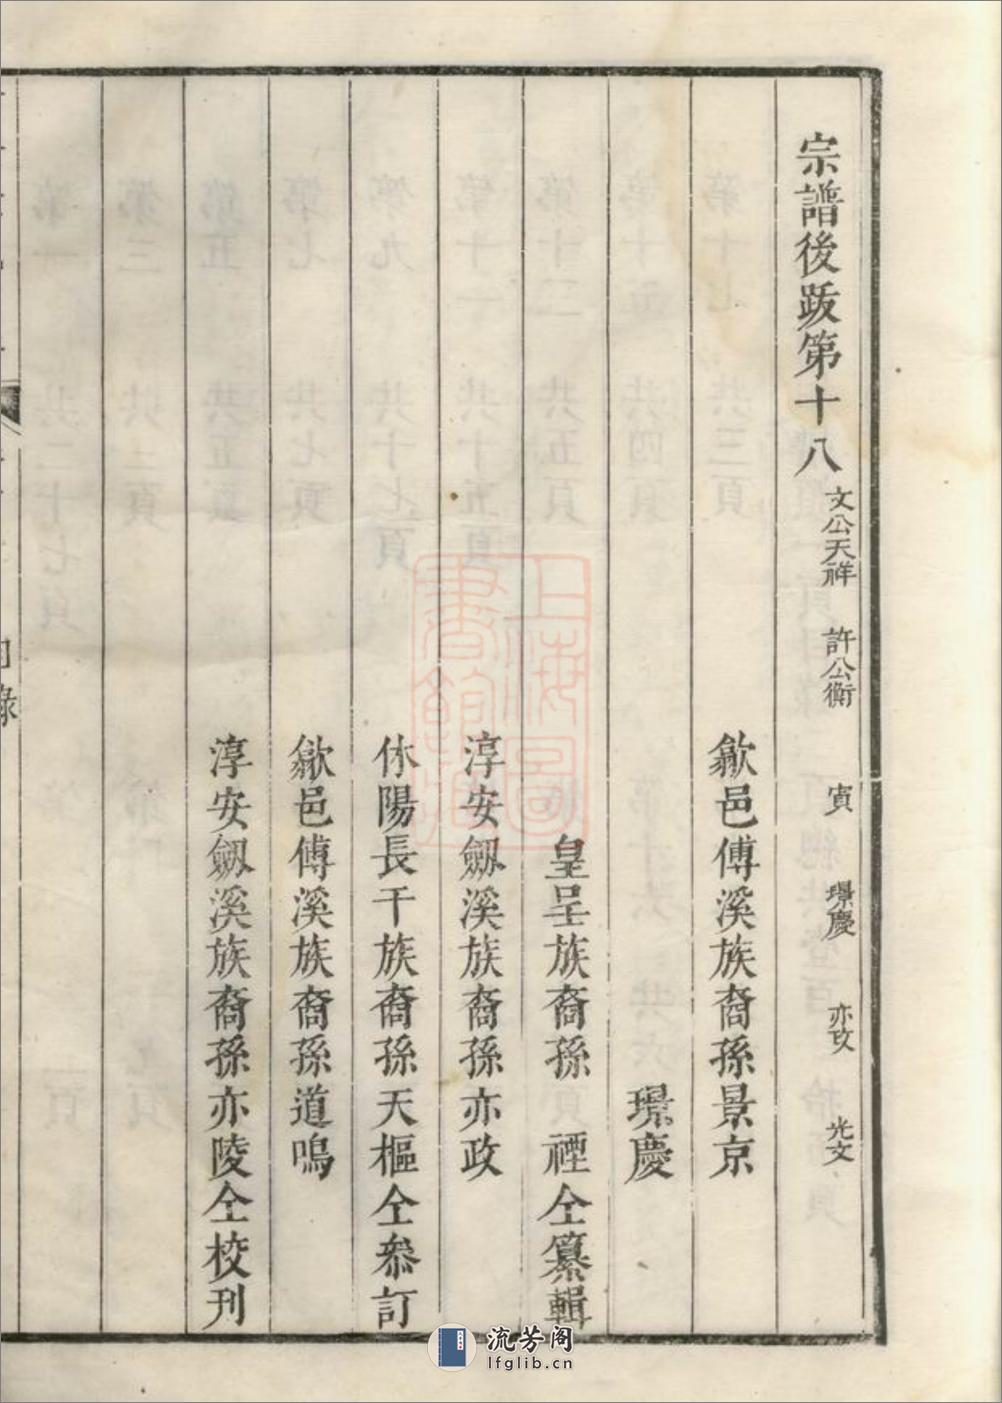 宗譜後跋第十八 文公天祥 許公衡 寅 璟慶 亦政 光文
歙邑傅溪族裔孫景京
璟慶
皇呈族裔孫 禋仝纂輯
淳安劔溪族裔孫亦政
休陽長干族裔孫天樞仝叅訂
歙邑傅溪族裔孫道鳴
淳安劔溪族裔孫亦陵仝校刊
目錄
上海圖書館藏
流芳阁
lfglib.cn